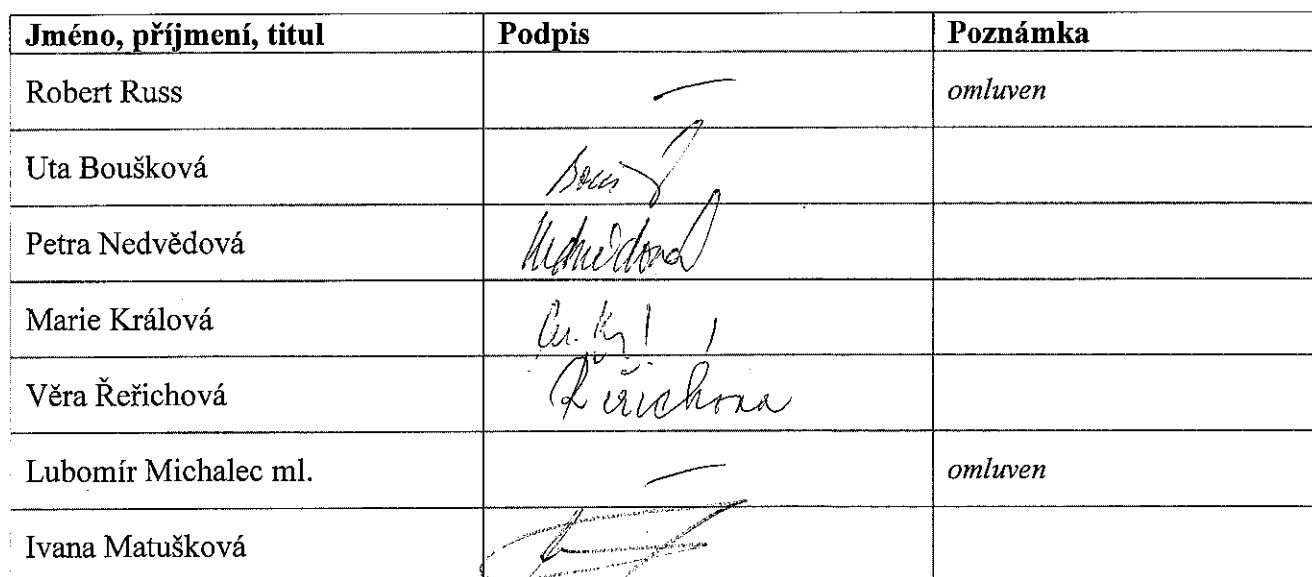 Jméno, příjmení, titul Podpis Poznámka
Robert Russ — omluven
Uta Boušková
Petra Nedvědová Nedvědová
Marie Králová
Věra Řeřichová Řeřichova
Lubomír Michalec ml. — omluven
Ivana Matušková